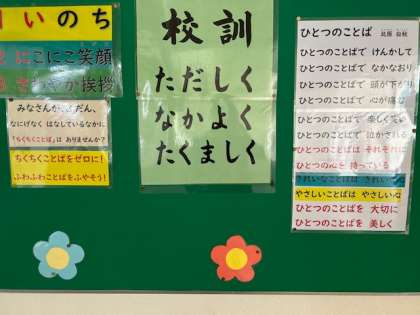 1 いのち
2 にこにこ笑顔
3 さわやか挨拶
みなさんが、ふだん、
なにげなく はなしているなかに
「ちくちくことば」は ありませんか？
ちくちくことばをゼロに！
ふわふわことばをふやそう！
校訓
ただしく
なかよく
たくましく
ひとつのことば
ひとつのことばで けんかして
ひとつのことばで なかなおり
ひとつのことばで 頭が下がり
ひとつのことばで 心が痛む
ひとつのことばで 楽しく笑い
ひとつのことばで 泣かされる
ひとつのことばは それぞれに
ひとつの心を 持っている
きれいなことばは きれいな心
やさしいことばは やさしい心
ひとつのことばを 大切に
ひとつのことばを 美しく